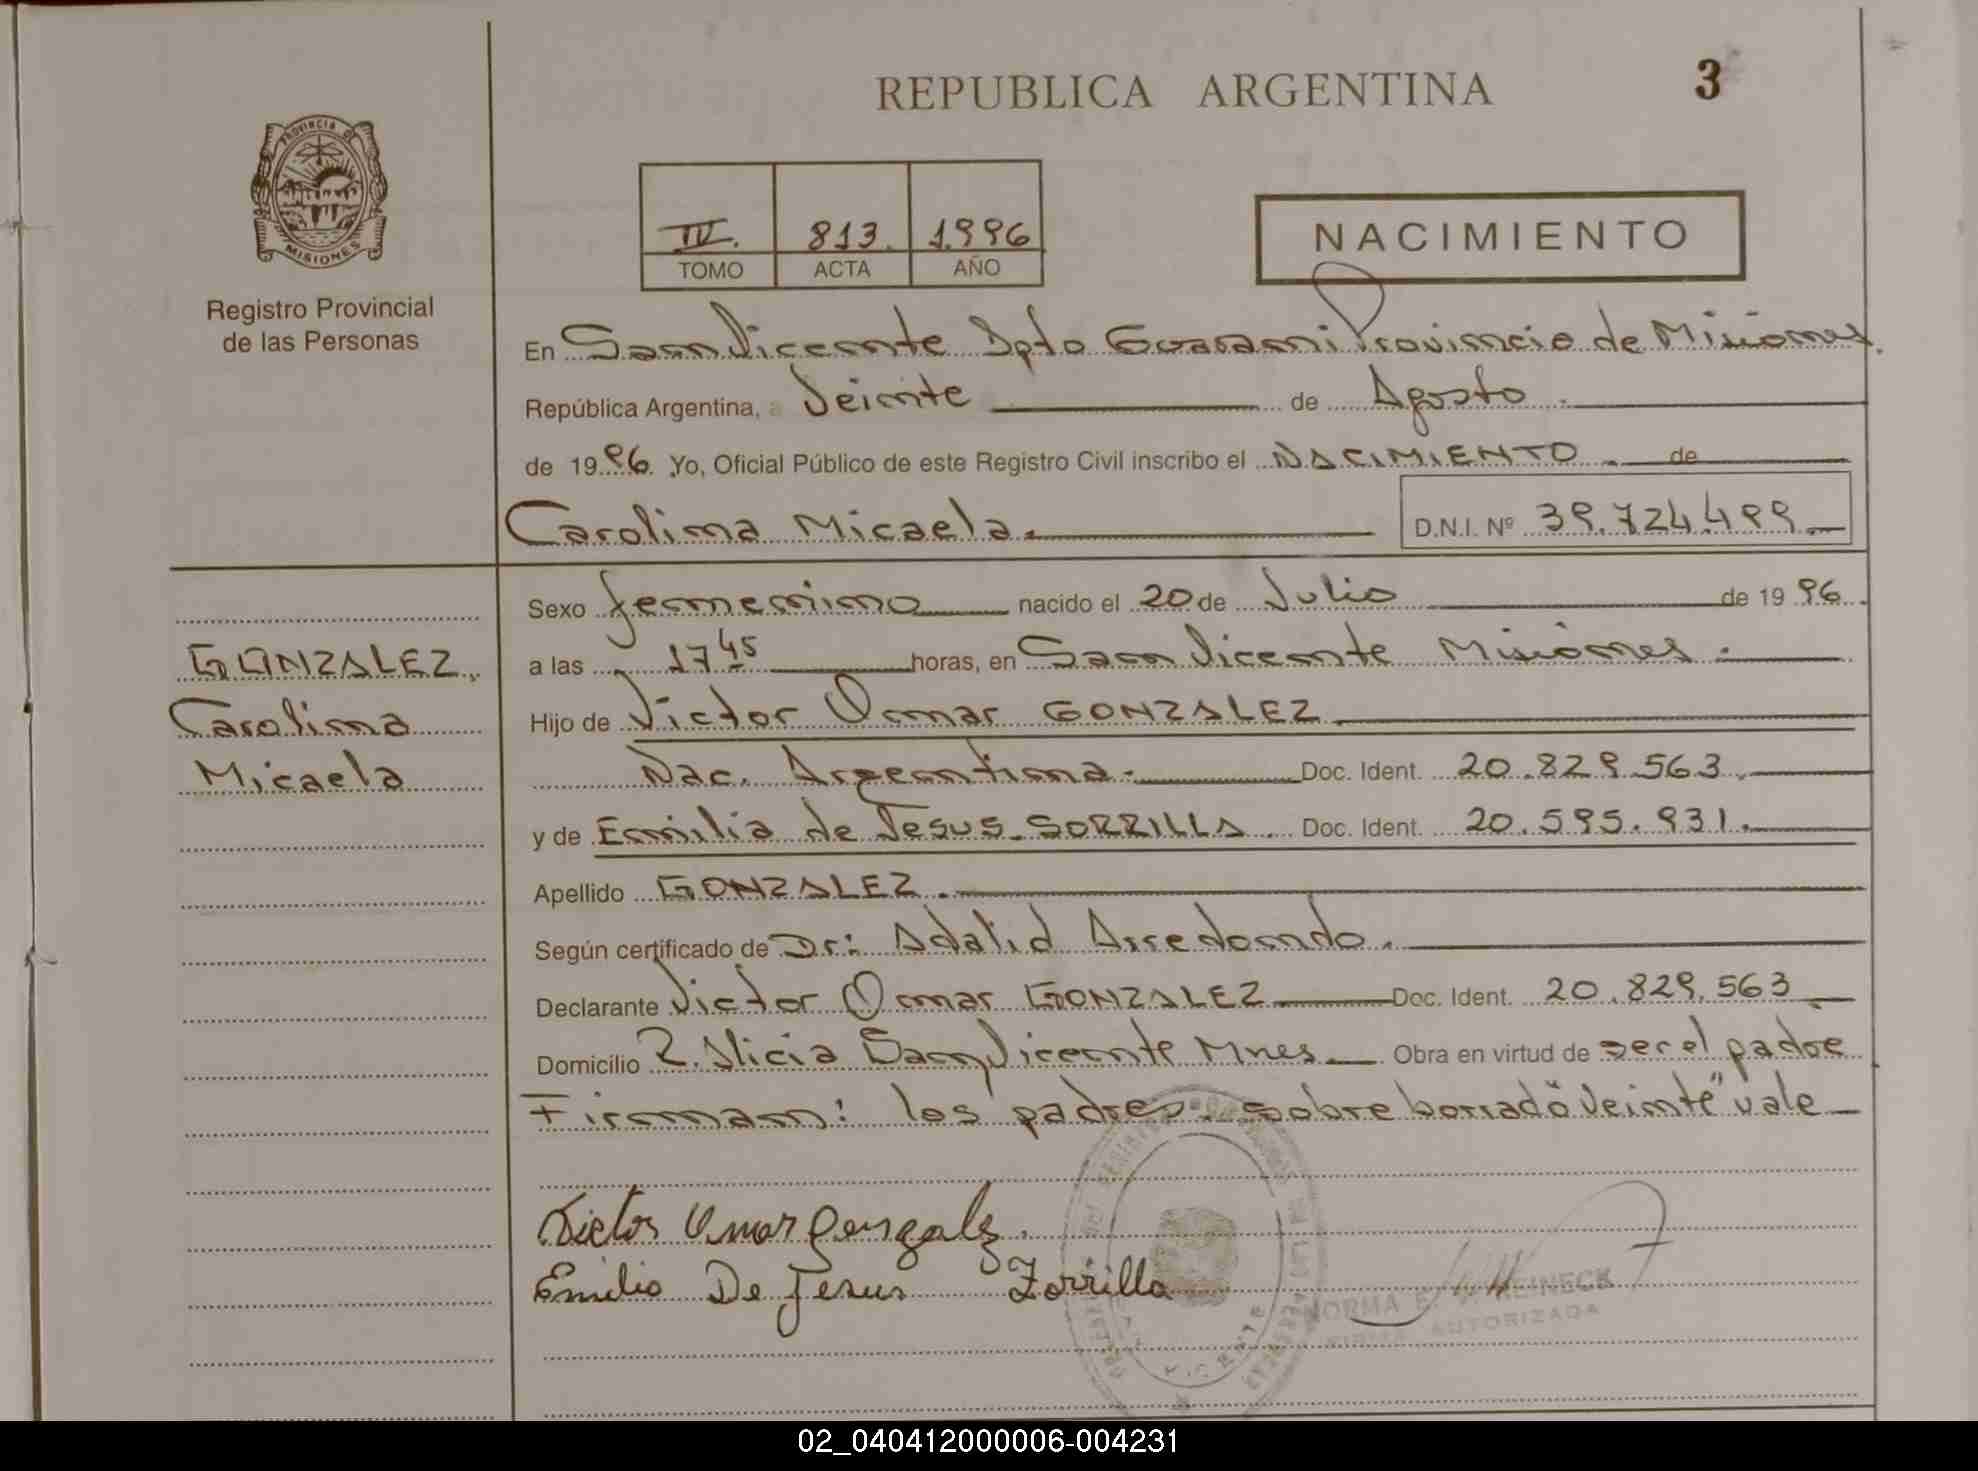 REPUBLICA ARGENTINA
3
PROVINCIA DE
MISIONES
Registro Provincial
de las Personas
IV. 813. 1.996
TOMO ACTA AÑO
NACIMIENTO
En San Vicente Dpto Guarani Provincia de Misiones.
República Argentina, a Veinte de Agosto.
de 1996. Yo, Oficial Público de este Registro Civil inscribo el NACIMIENTO. de
Carolina Micaela. D.N.I. Nº 39.724.499.
Sexo femenino nacido el 20 de Julio de 1996.
a las 17 45 horas, en San Vicente Misiones.
Hijo de Victor Omar GONZALEZ
Nac. Argentina. Doc. Ident. 20.829.563.
y de Emilia de Jesus SORRILLA Doc. Ident. 20.595.931.
Apellido GONZALEZ.
Según certificado de Dr: Adalid Arredondo.
Declarante Victor Omar GONZALEZ Doc. Ident. 20.829.563
Domicilio 2. Alicia San Vicente Mnes. Obra en virtud de ser el padre
Firman: los padres. sobre borrado "Veinte" vale
GONZALEZ,
Carolina
Micaela
Victor Omar Gonzalz.
Emilia De Jesus Zorrilla
NORMA E. HEINECK
FIRMA AUTORIZADA
02_040412000006-004231